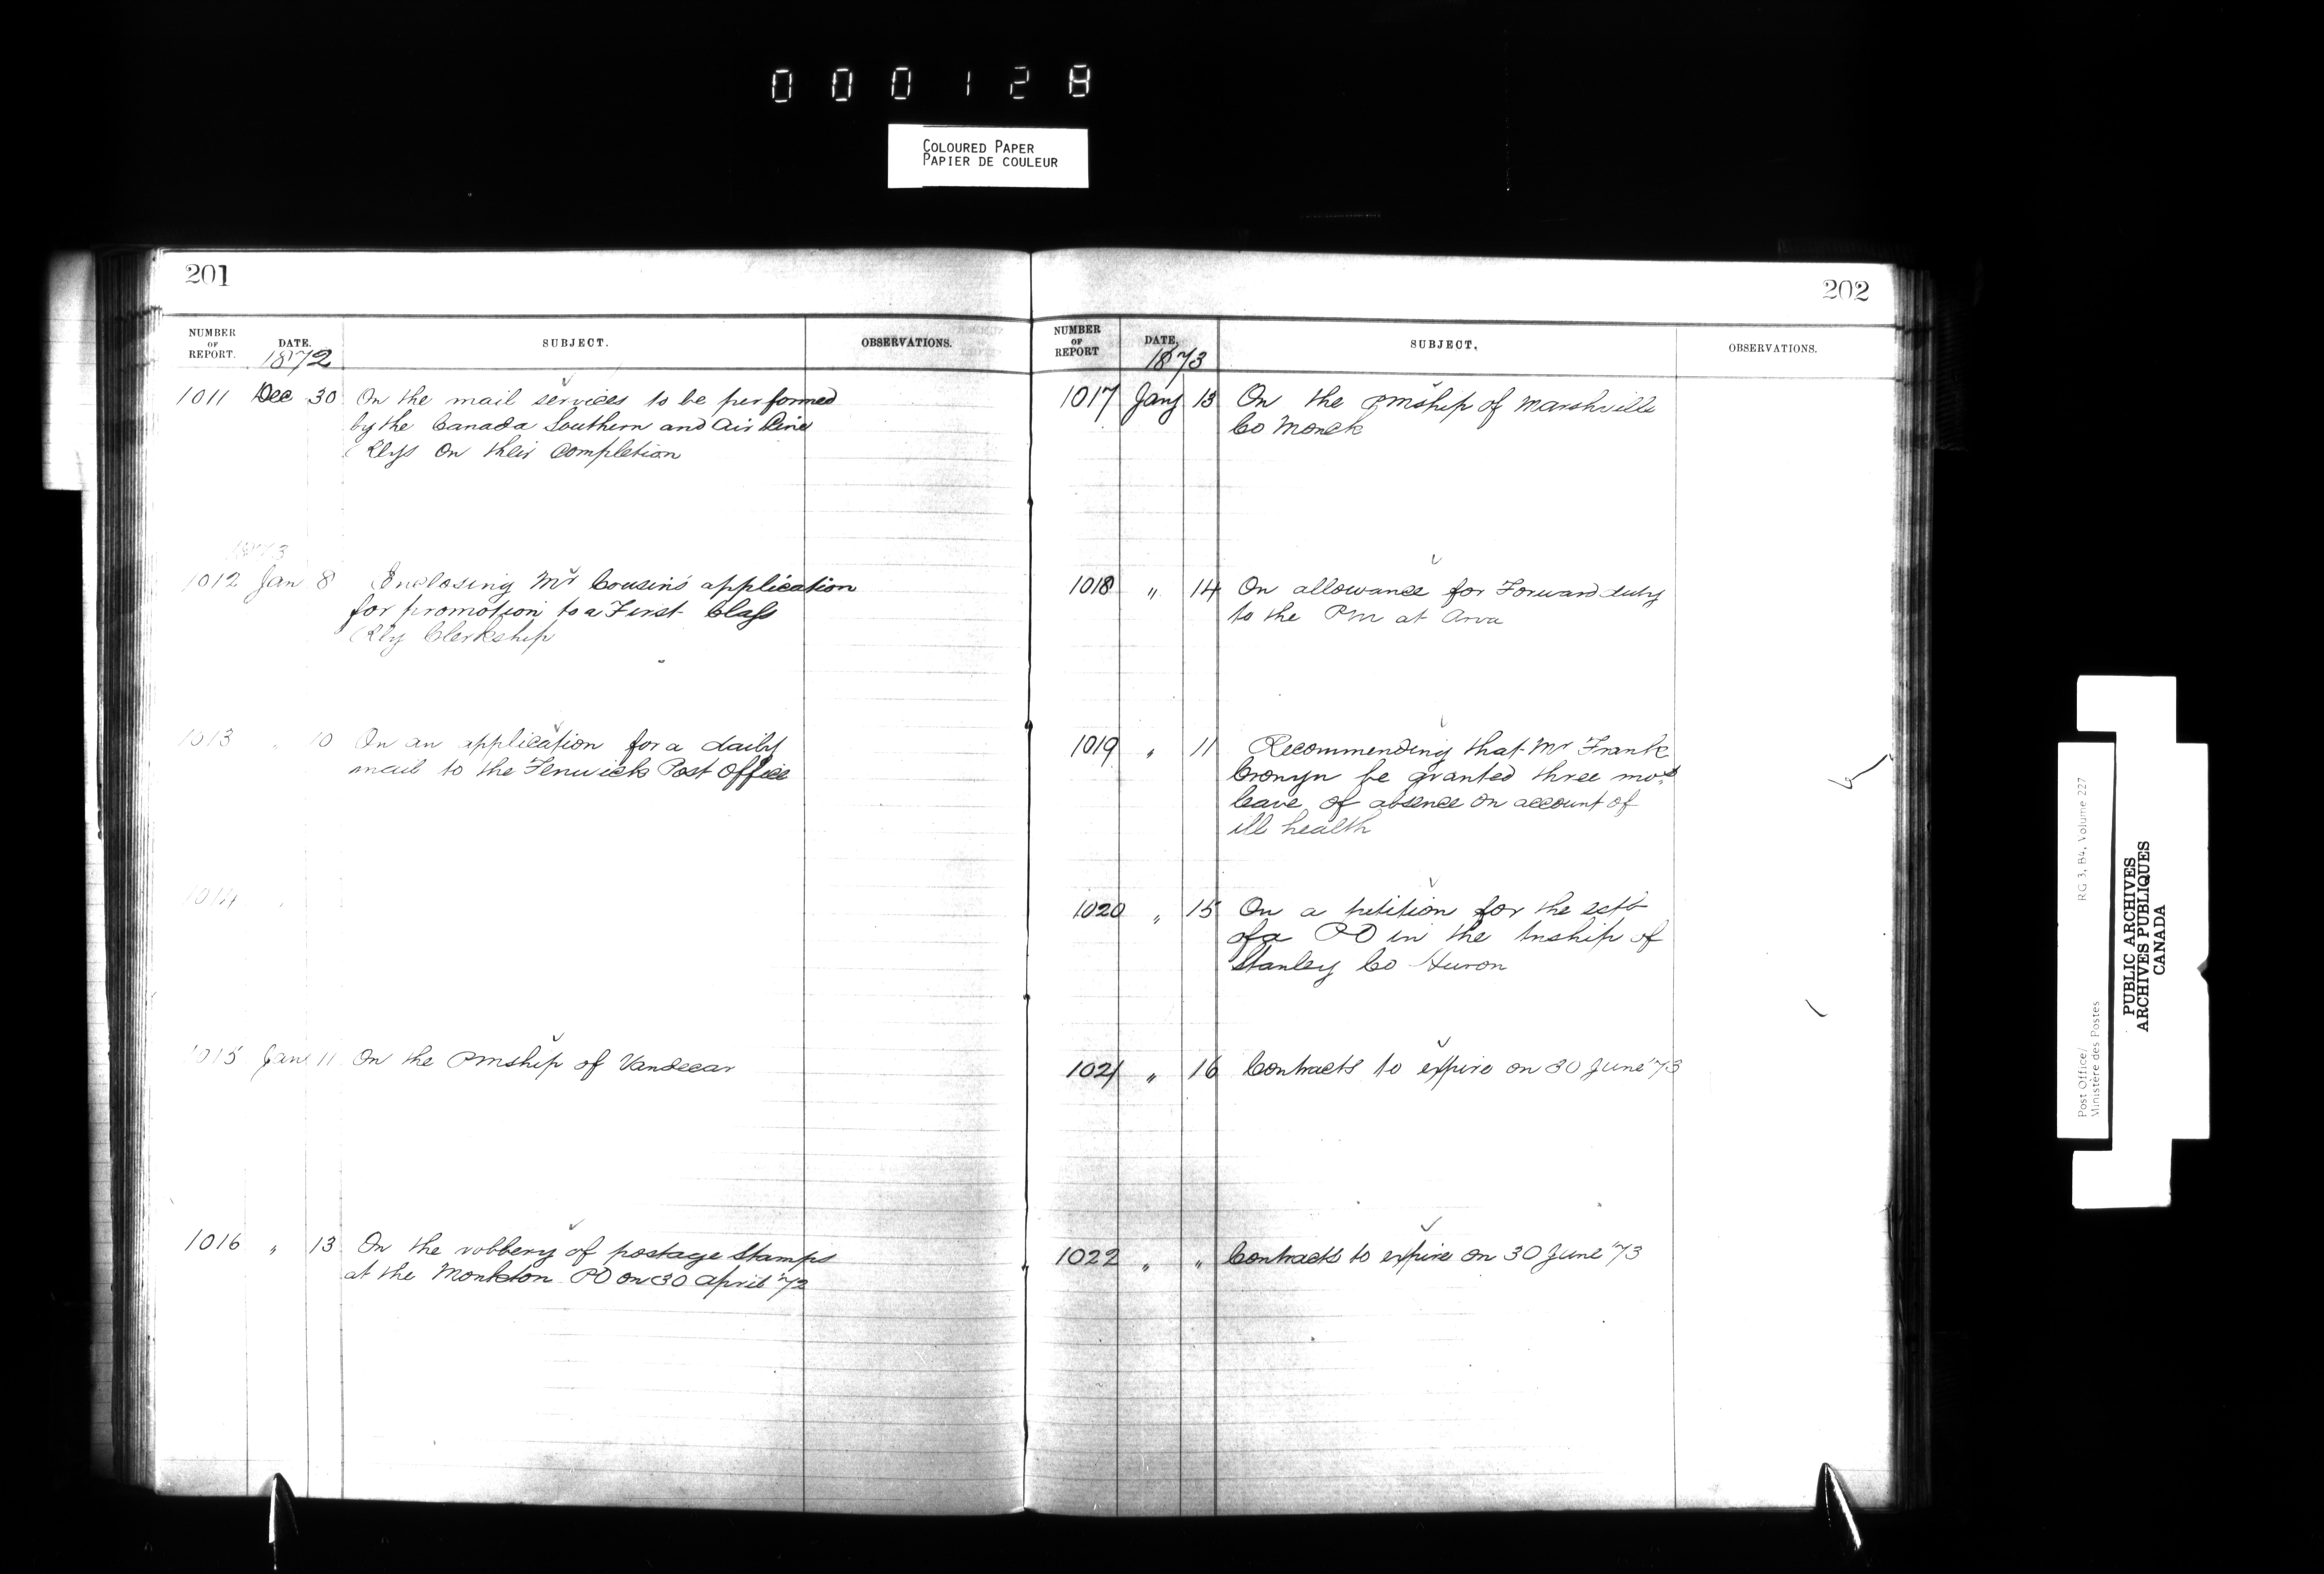 000128
COLOURED PAPER
PAPIER DE COULEUR
201
NUMBER OF REPORT. DATE. SUBJECT. OBSERVATIONS.
1872
1011 Dec 30 On the mail services to be performed
by the Canada Southern and Air Line
Rlys on their completion
1873
1012 Jan 8 Enclosing Mr Cousins application
for promotion to a First Class
Rly Clerkship
1013 " 10 On an application for a daily
mail to the Fenwick Post Office
1014 "
1015 Jany 11 On the Pmship of Vandecar
1016 " 13 On the robbery of postage Stamps
at the Monkton PO on 30 April '72
202
NUMBER OF REPORT DATE, SUBJECT, OBSERVATIONS.
1873
1017 Jany 13 On the Pmship of Marshville
Co Monck
1018 " 14 On allowance for Forward duty
to the Pm at Arva
1019 " 11 Recommending that Mr Frank
Cronyn be granted three mos
leave of absence on account of
ill health
1020 " 15 On a petition for the estb
of a PO in the Tnship of
Stanley Co Huron
1021 " 16 Contracts to expire on 30 June '73
1022 " " Contracts to expire on 30 June '73
Post Office/
Ministère des Postes
RG 3, B4, Volume 227
PUBLIC ARCHIVES
ARCHIVES PUBLIQUES
CANADA